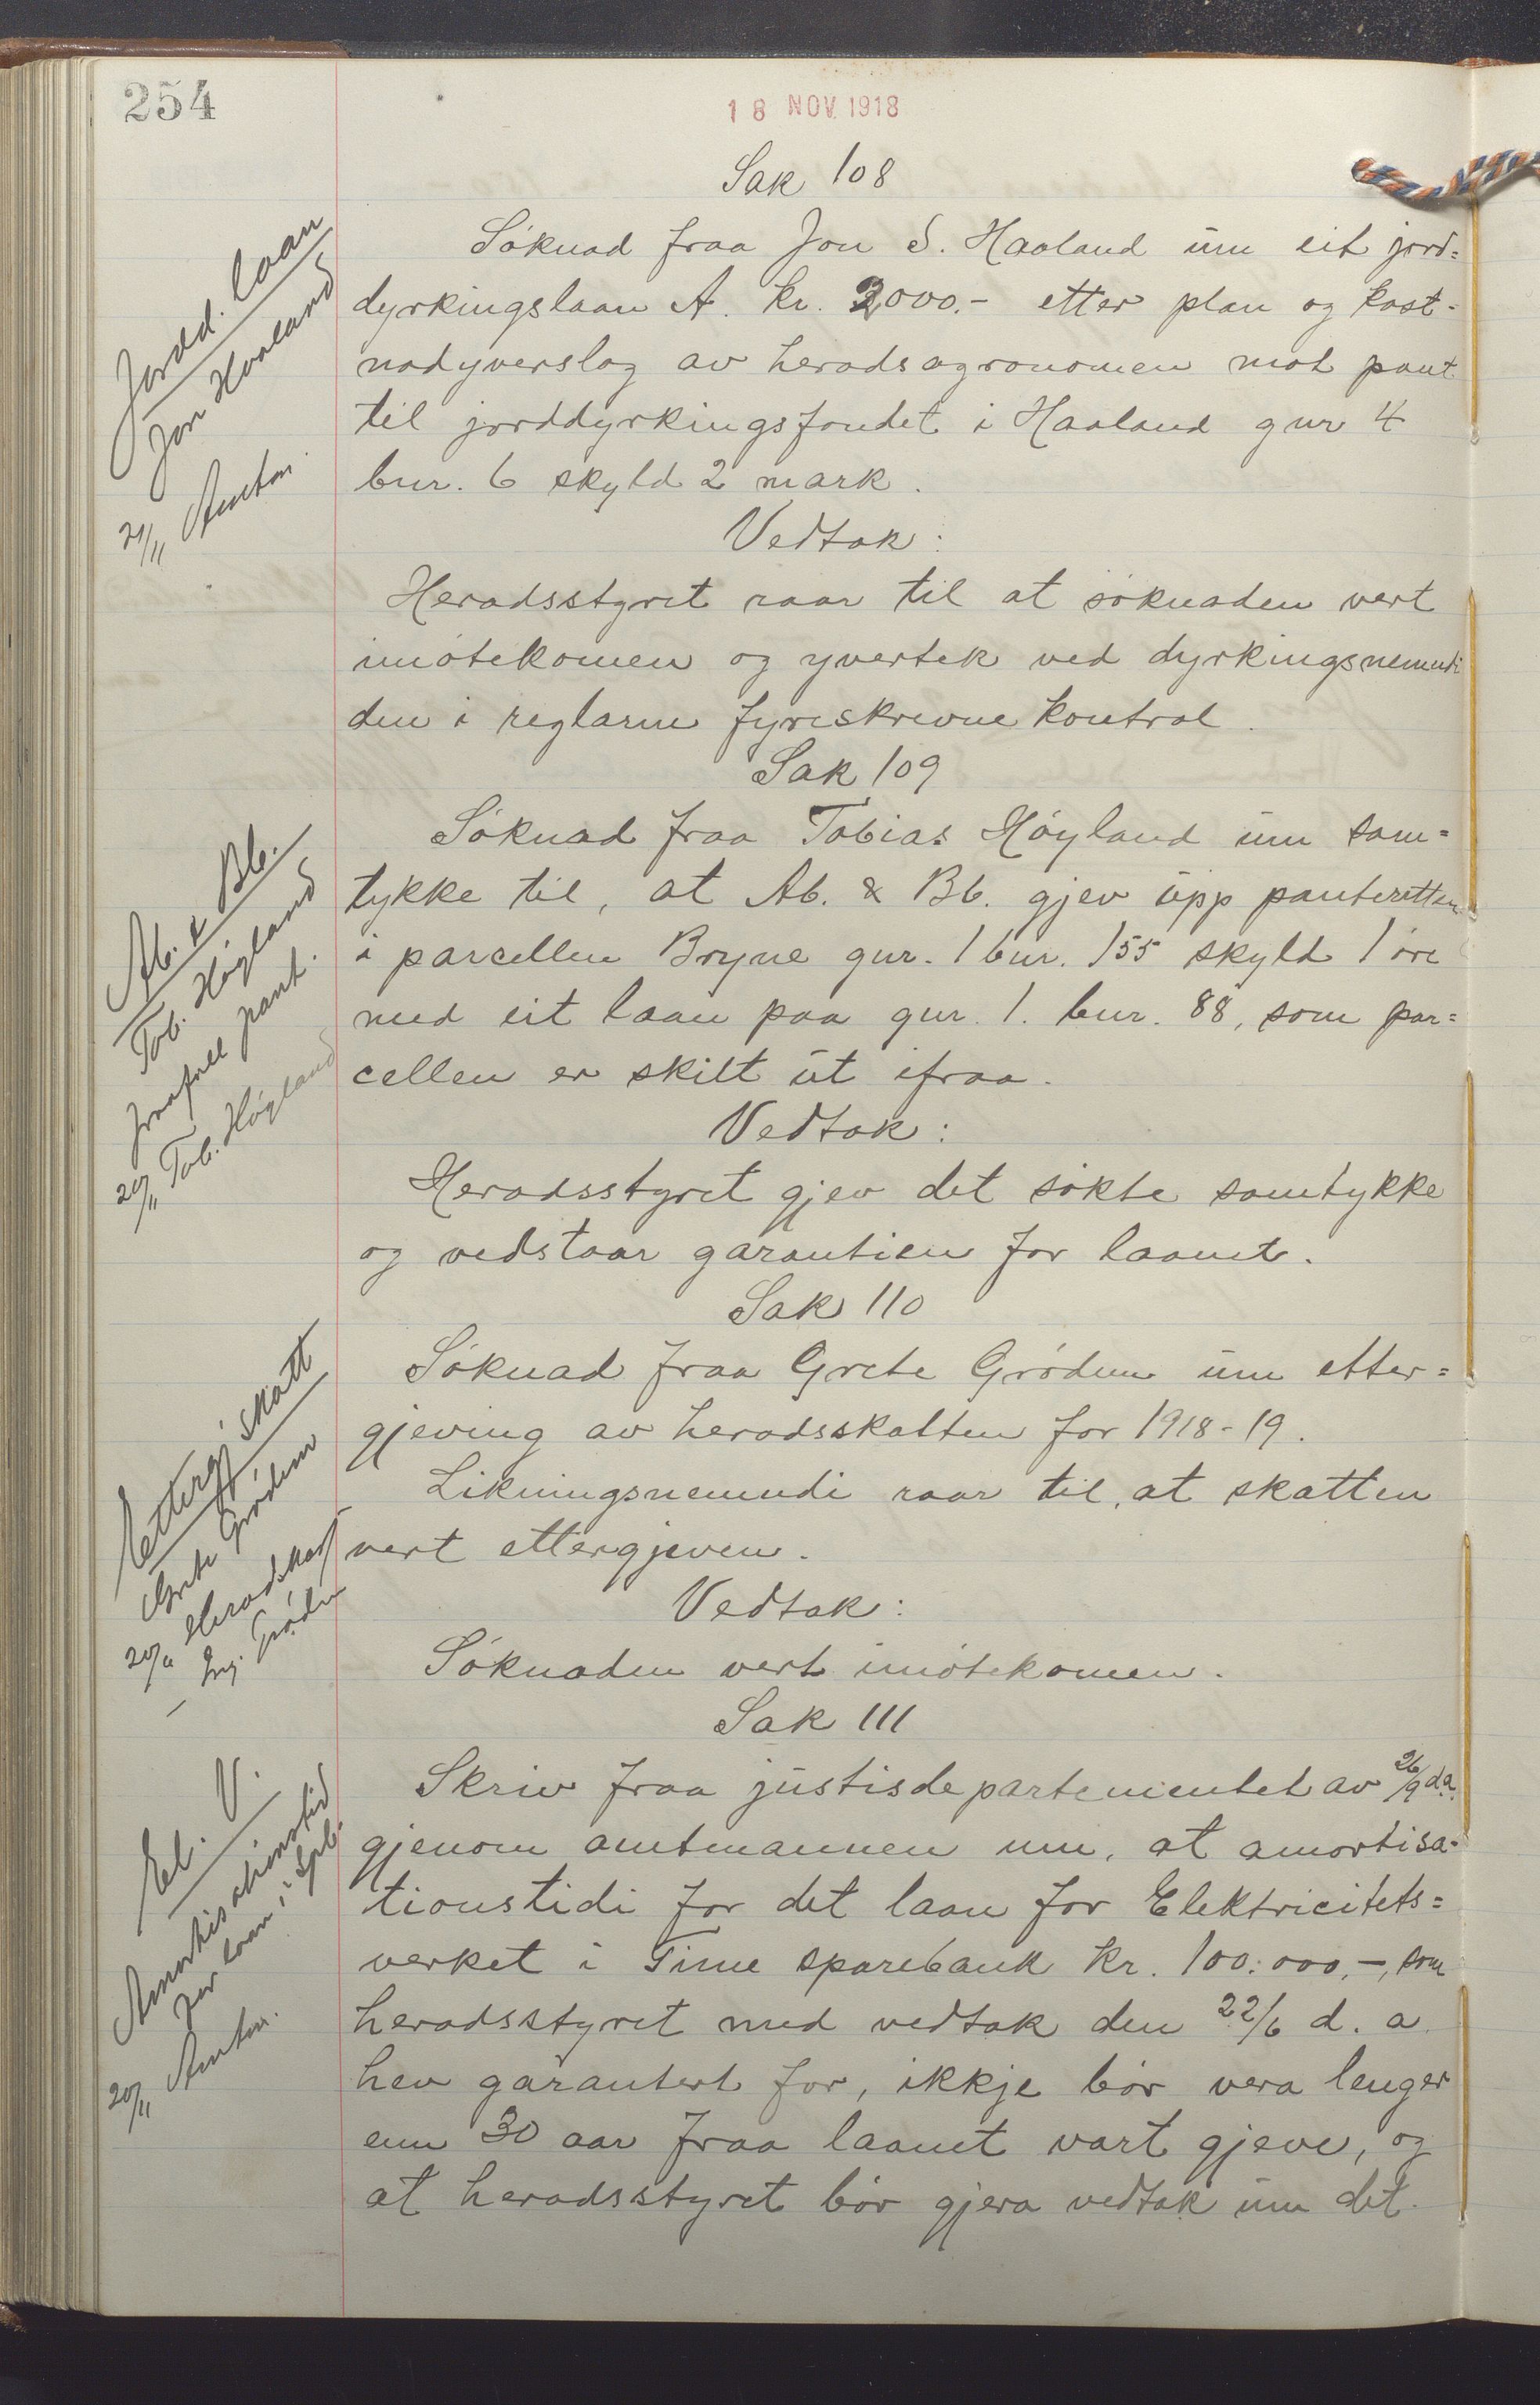 254
18 NOV. 1918
Sak 108
Jordd. laan
Jon Haaland
21/11 Amtm.
Søknad fraa Jon S. Haaland um eit jord=
dyrkingslaan A. kr. 2000.- etter plan og kost-
nadyverslag av heradsagronomen mot pant
til jorddyrkingsfondet i Haaland gnr 4
bnr. 6 skyld 2 mark.
Vedtak:
Heradsstyret raar til at søknaden vert
imøtekomen og yvertek ved dyrkingsnemndi
den i reglarne fyreskrevne kontrol.
Sak 109
Ab. & Bb.
Tob. Høyland
fraafall pant.
20/11 Tob. Høyland
Søknad fraa Tobias Høyland um sam=
tykke til, at Ab. & Bb. gjev upp panteretten
i parcellen Bryne gnr. 1 bnr. 155 skyld 1 øre
med eit laan paa gnr. 1. bnr. 88, som par=
cellen er skilt ut ifraa.
Vedtak:
Heradsstyret gjev det søkte samtykke
og vedstaar garantien for laanet.
Sak 110
Ettergj. skatt
Grete Grødem
20/11 Heradskass
— Ing. Grødem
Søknad fraa Grete Grødem um etter=
gjeving av heradsskatten for 1918-19.
Likningsnemndi raar til, at skatten
vert ettergjeven.
Vedtak:
Søknaden vert imøtekomen.
Sak 111
El. V.
Amortisationstid
for laan i Spb.
20/11 Amtm.
Skriv fraa justisdepartementet av 26/9 d.a.
gjenom amtmannen um, at amortisa=
tionstidi for det laan for Elektricitets=
verket i Time sparebank kr. 100.000,-, som
heradsstyret med vedtak den 22/6 d. a.
hev garantert for, ikkje bør vera lenger
enn 30 aar fraa laanet vart gjeve, og
at heradsstyret bør gjera vedtak um det.